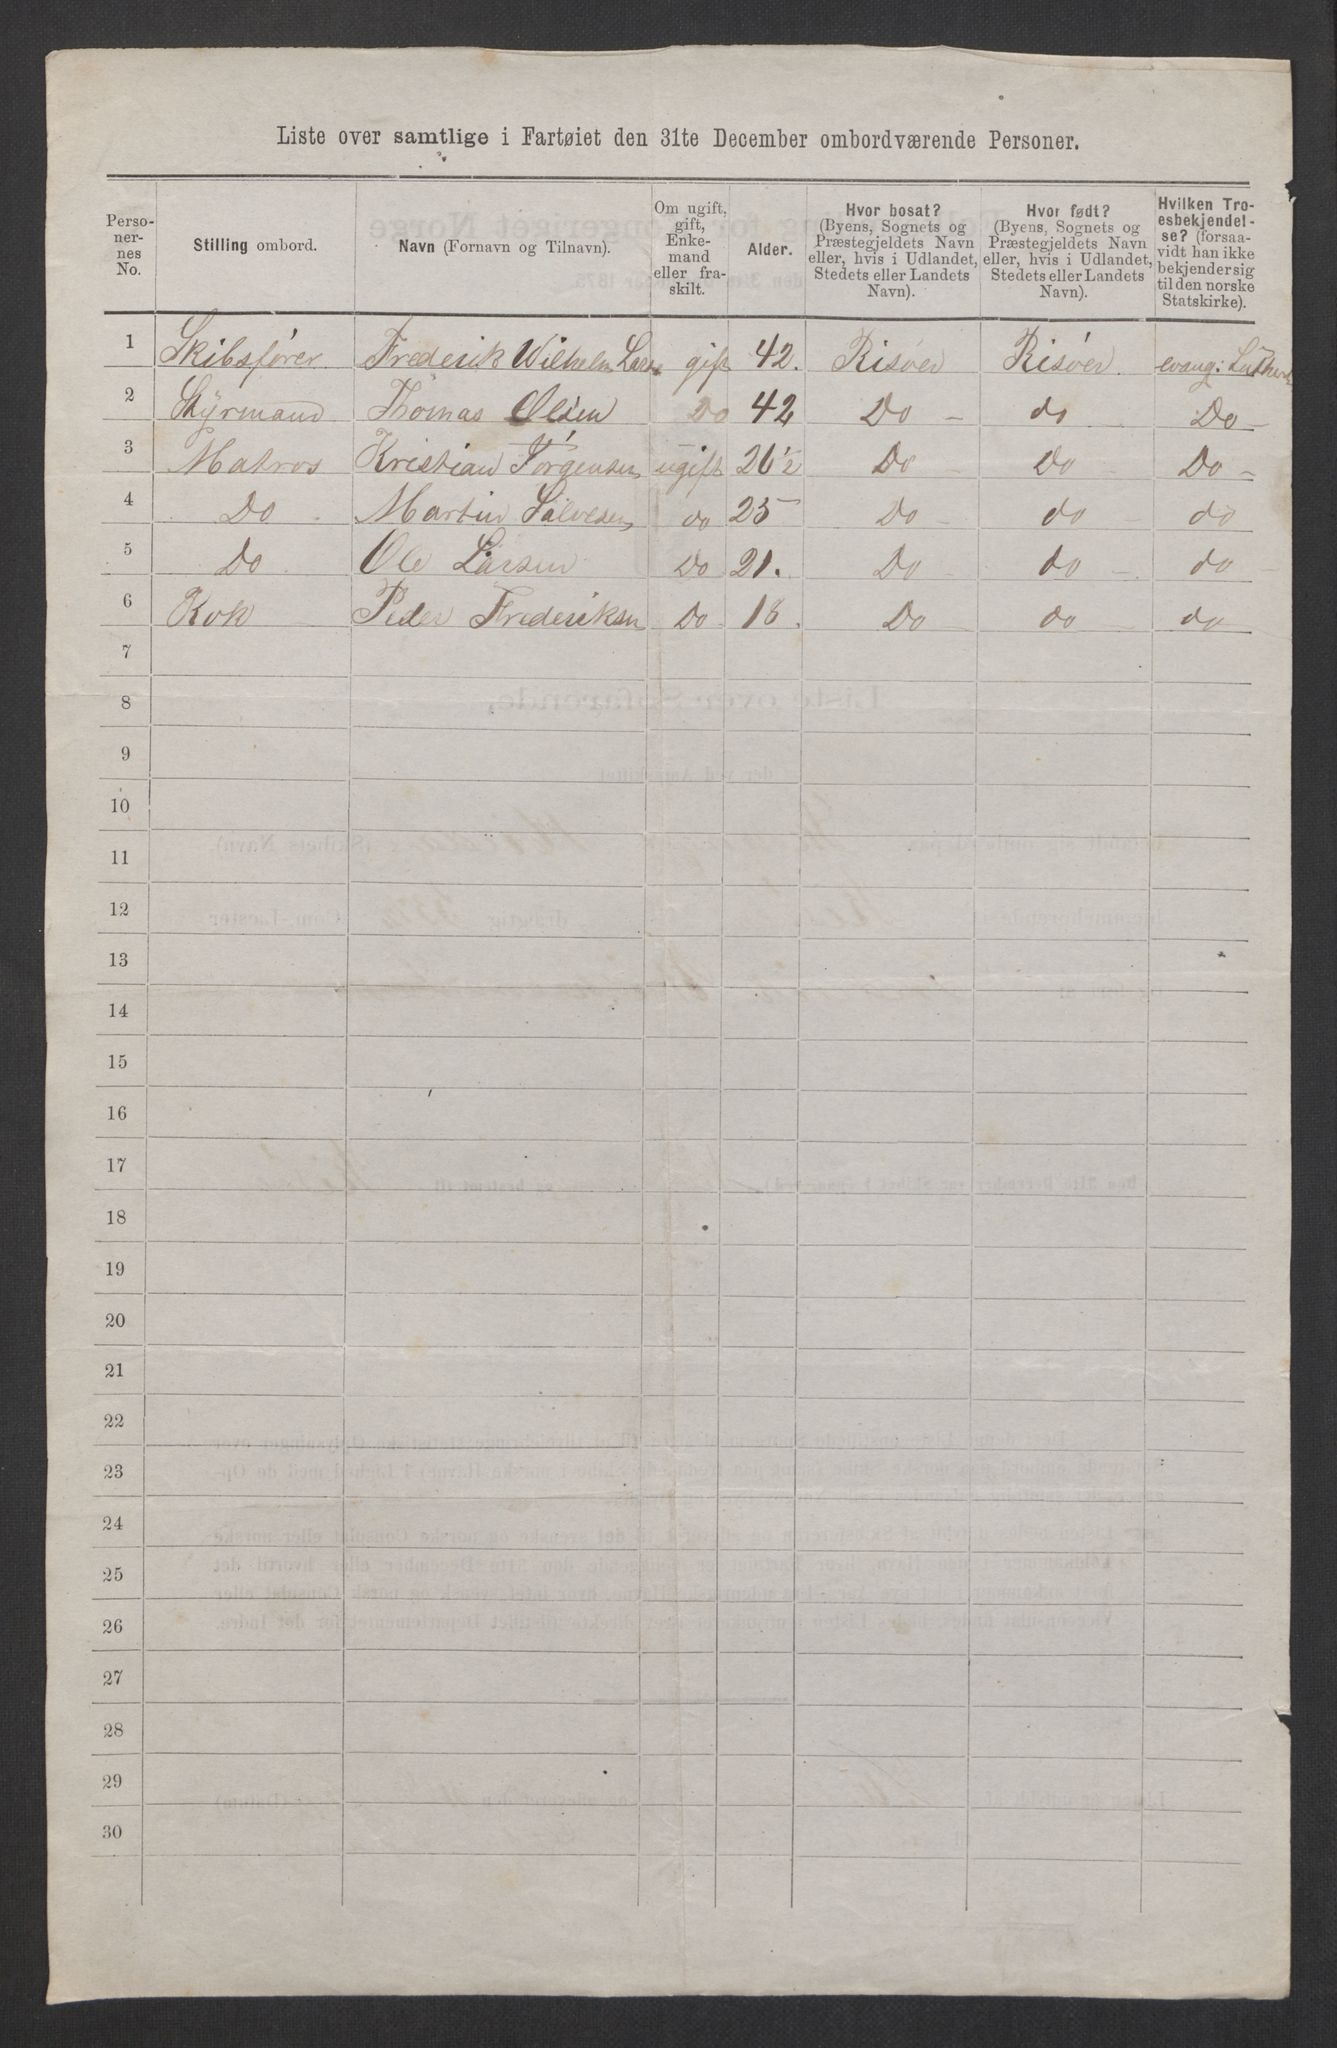 Liste over samtlige i Fartøiet den 31te December ombordværende Personer.
Perso-
ner-
nes
No.
Stilling ombord.
Navn (Fornavn og Tilnavn).
Om ugift,
gift,
Enke-
mand
eller fra-
skilt.
Alder.
Hvor bosat?
(Byens, Sognets og
Præstegjeldets Navn
eller, hvis i Udlandet,
Stedets eller Landets
Navn).
Hvor født?
(Byens, Sognets og
Præstegjeldets Navn
eller, hvis i Udlandet,
Stedets eller Landets
Navn).
Hvilken Tro-
esbekjendel-
se? (forsaa-
vidt han ikke
bekjender sig
til den norske
Statskirke).
1 Skibsfører Frederik Wilhelm Larsen gift 42. Risøer Risøer evang: Luthersk
2 Styrmand Thomas Olsen Do 42 Do do Do
3 Matros Kristian Jørgensen ugift 26½ Do Do Do
4 Do Martin Salvesen do 25 Do do do
5 Do Ole Larsen Do 21. Do do do
6 Kok Peder Frederiksen Do 18. Do do do
7
8
9
10
11
12
13
14
15
16
17
18
19
20
21
22
23
24
25
26
27
28
29
30